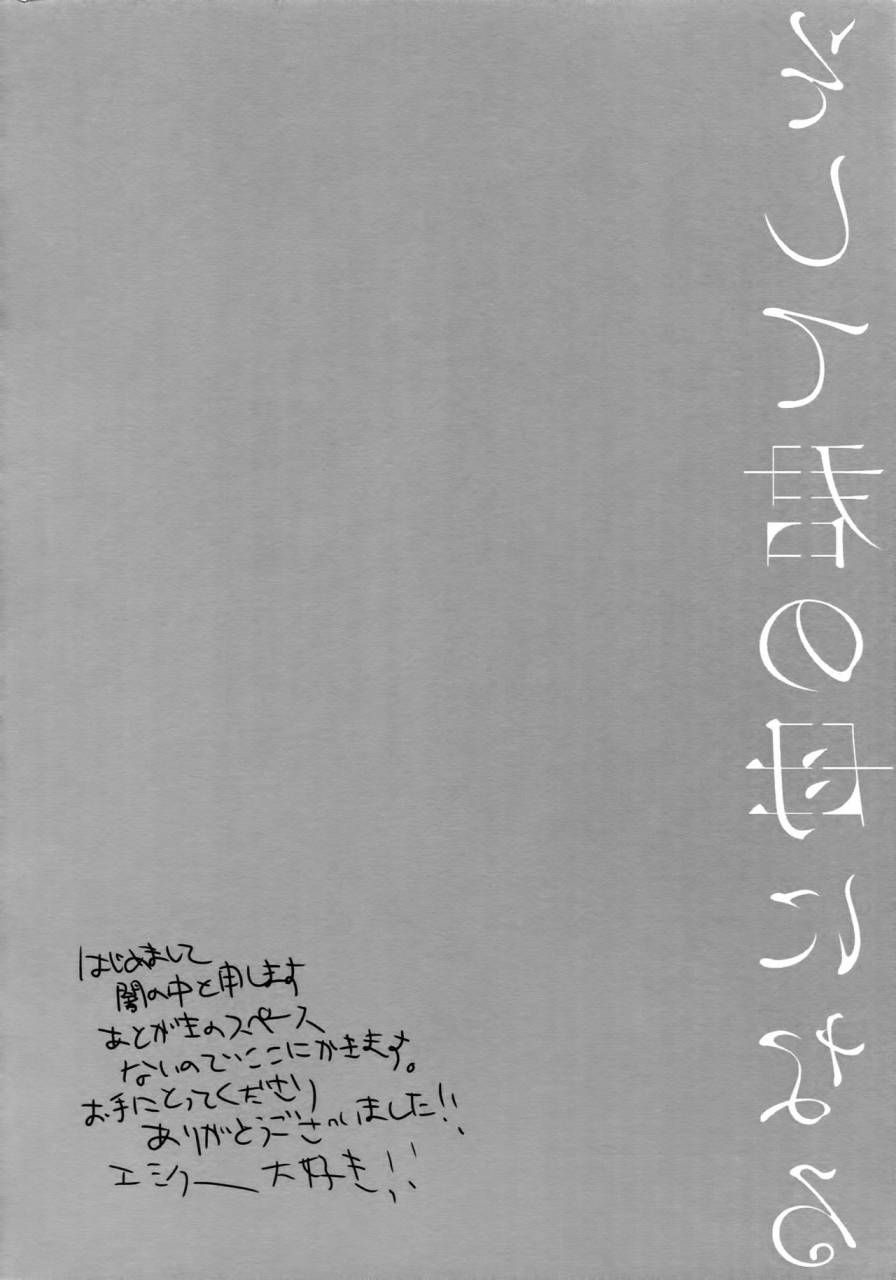 の母になる
はじめまして
闇の中と申します
あとがきのスペース
ないのでここにかきます。
お手にとってくださり
ありがとうございました!!
エシクー大好き!!